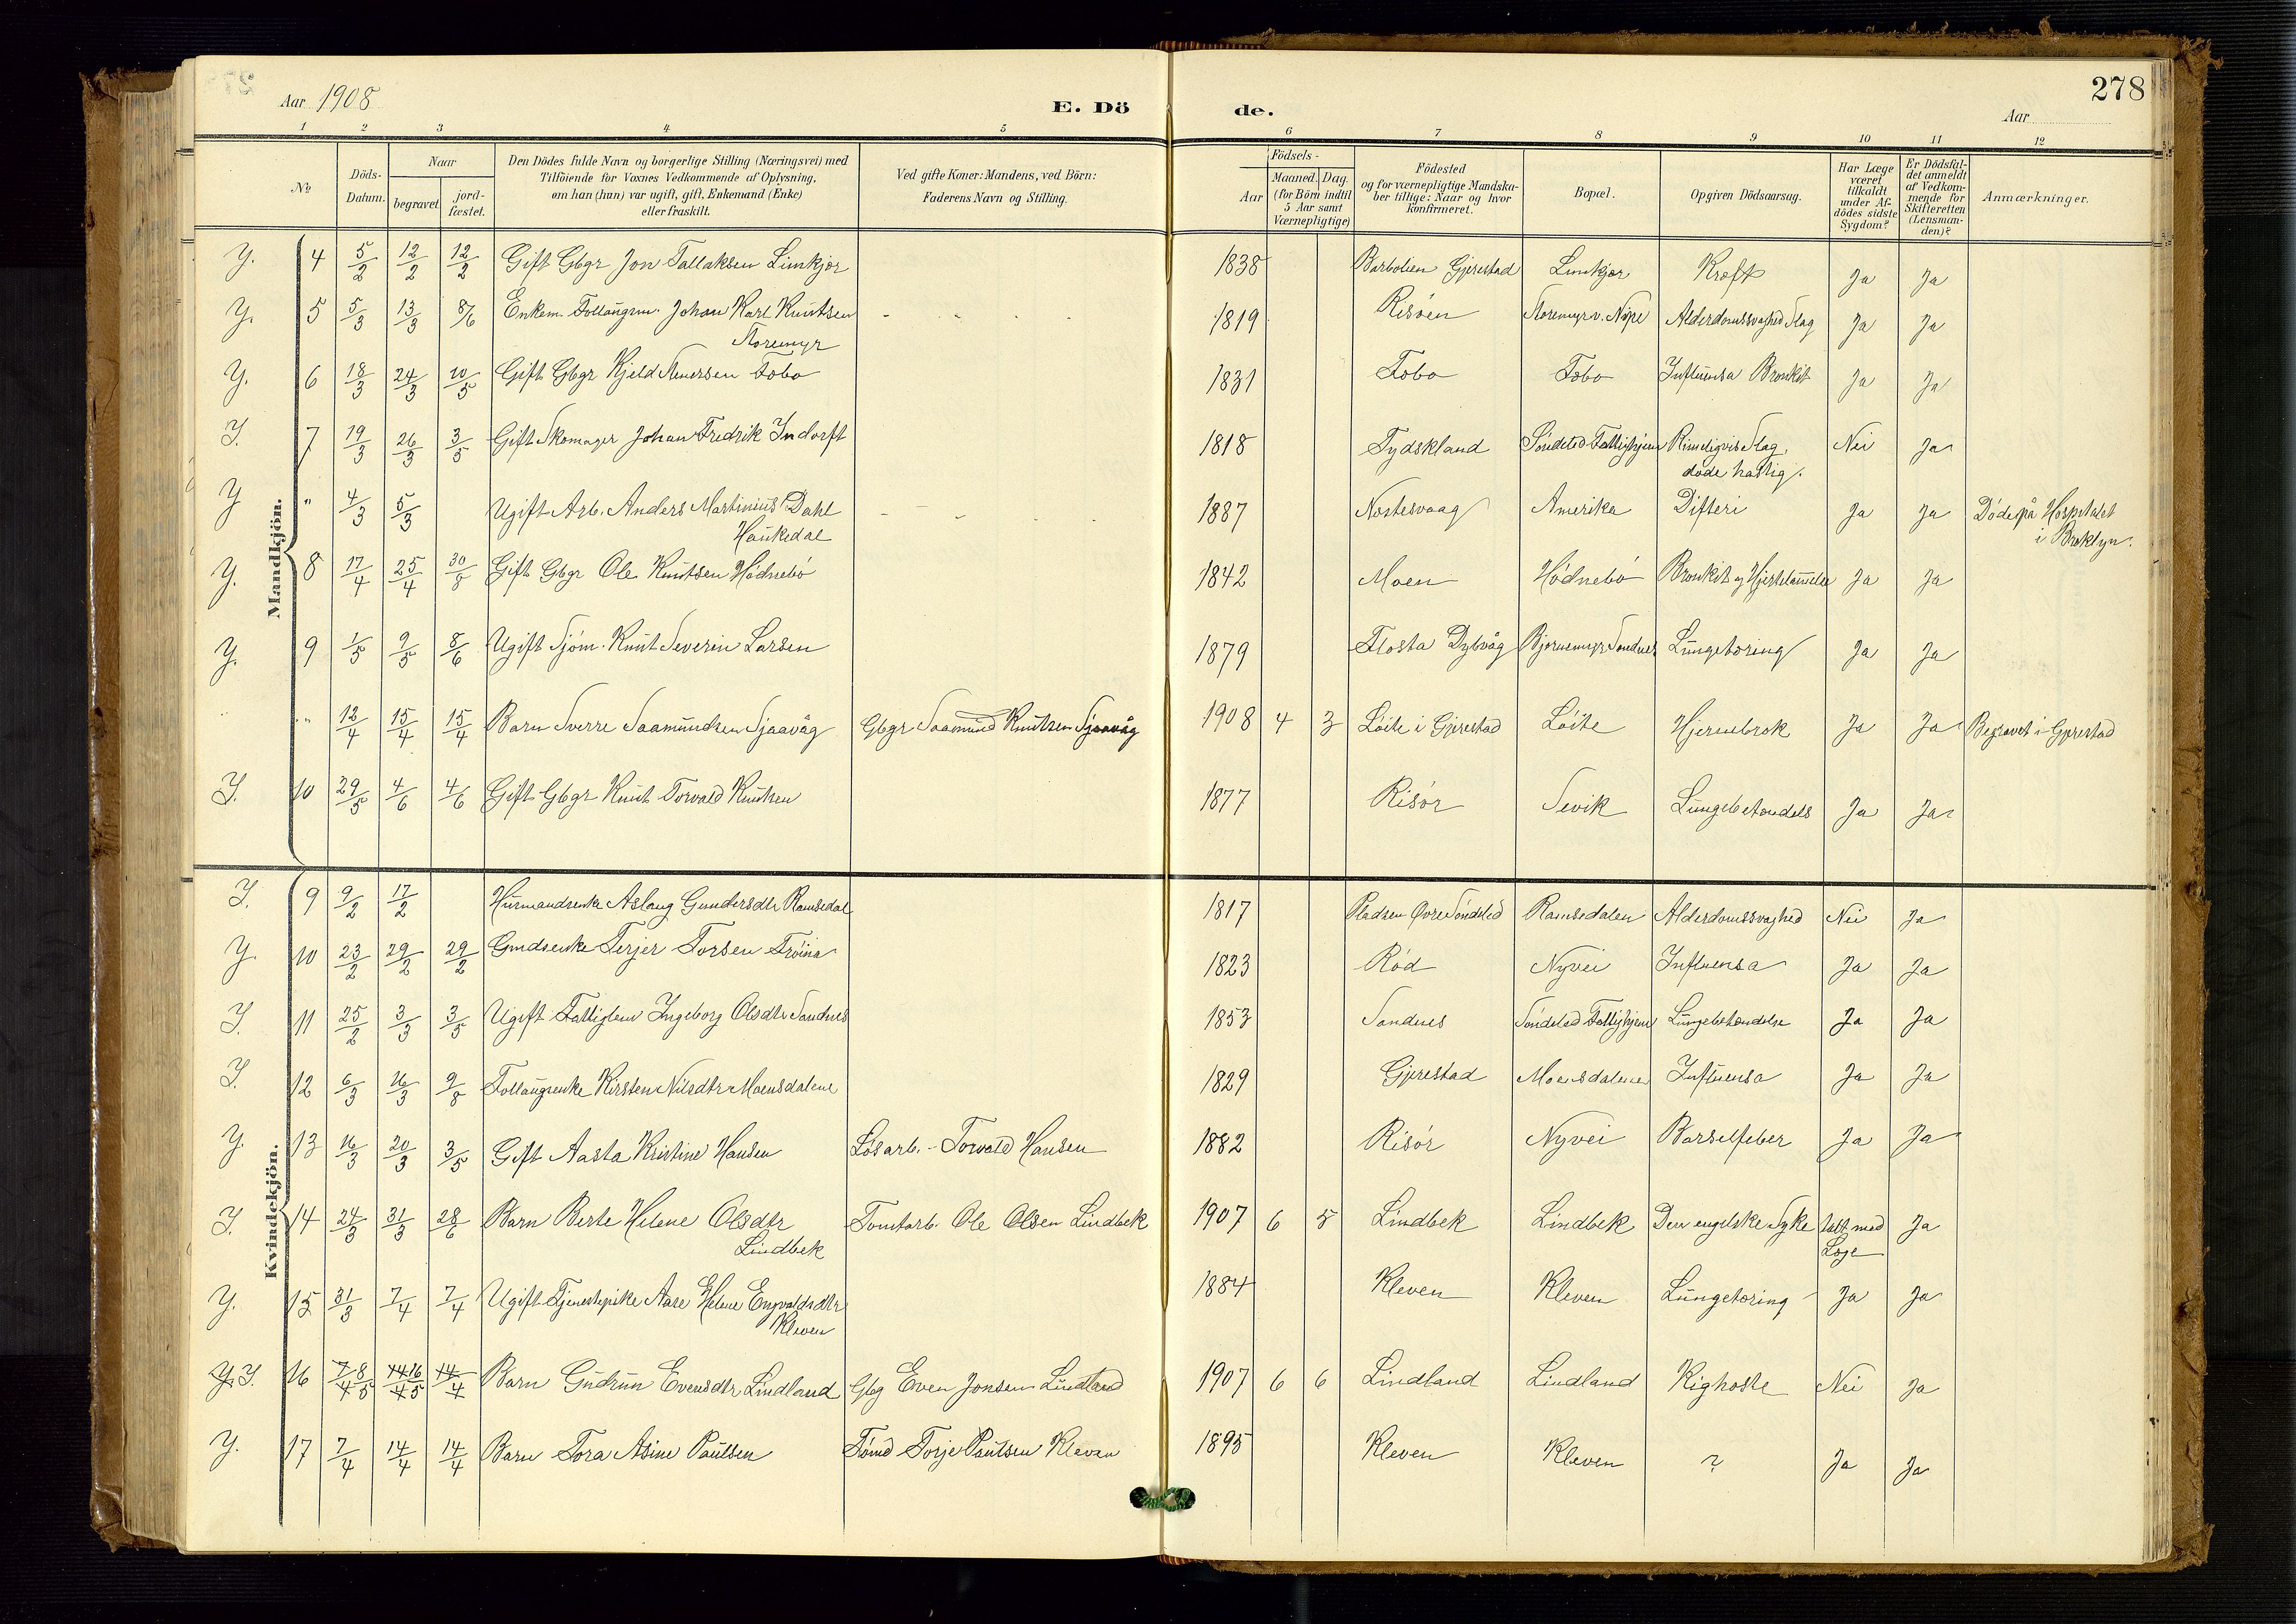 278
Aar 1908
E. Dö de.
Aar
1 2 3 4 5 6 7 8 9 10 11 12
№
Döds-Datum.
Naar
begravet
jord-fæstet.
Den Dödes fulde Navn og borgerlige Stilling (Næringsvei) med
Tilföiende for Voxnes Vedkommende af Oplysning,
om han (hun) var ugift, gift, Enkemand (Enke)
eller fraskilt.
Ved gifte Koner: Mandens, ved Börn:
Faderens Navn og Stilling.
Födsels-
Aar
Maaned. Dag.
(for Börn indtil
5 Aar samt
Værnepligtige)
Födested
og for værnepligtige Mandska-
ber tillige: Naar og hvor
konfirmeret.
Bopæl.
Opgiven Dödsaarsag.
Har Læge
været
tilkaldt
under Af-
dödes sidste
Sygdom?
Er Dödsfal-
det anmeldt
af Vedkom-
mende for
Skifteretten
(Lensman-
den)?
Anmærkninger.
Mandkjön.
Y. 4 5/2 12/2 12/2 Gift Gbgr Jon Tallaksen Limkjær 1838 Gjerestad Limkjær Kræft Ja Ja
Y. 5 5/3 13/3 8/6 Enkem. Follaugsm. Johan Karl Knutsen 1819 Risöen Storemyr v. Nipe Alderdomssvaghed Slag Ja Ja
Storemyr
Y. 6 18/3 24/3 10/5 Gift Gbgr Kjeld Stenersen Fobo 1831 Fobo Fobo Influensa Bronkit Ja Ja
I. 7 19/3 26/3 3/5 Gift Skomager Johan Fredrik Indorft 1818 Tydskland Söndeled Fattighjem Rimeligvis Slag, Nei Ja
döde hastig.
Y " 4/3 5/3 Ugift Arb. Anders Martinius Dahl 1887 Nostesvaag Amerika Difteri Ja Ja Döde på Hospitalet
Haukedal i Broklyn.
Y. 8 17/4 25/4 30/8 Gift Gbgr Ole Knutsen Hödnebö 1842 Moen Hödnebö Bronkit og Hjertelammelse Ja Ja
Y. 9 1/5 9/5 8/6 Ugift Sjöm. Knut Severin Larsen 1879 Flosta Dybvåg Bjørnemyr Sandnes Lungetæring Ja Ja
" 12/4 15/4 15/4 Barn Sverre Saamundsen Sjaavåg Gbgr Saamund Knutsen Sjaavåg 1908 4 3 Löite i Gjerestad Löite Hjernebrok Ja Ja Begravet i Gjerestad
I. 10 29/5 4/6 4/6 Gift Gbgr Knut Torvald Knutsen 1877 Risör Sevik Lungebetændels Ja Ja
Kvindekjön.
I. 9 9/2 17/2 Husmandsenke Aslaug Gundersdtr Ramsedal 1817 Pladsen Øvre Söndeled Ramsedalen Alderdomssvaghed Nei Ja
Y. 10 23/2 29/2 29/2 Gmdsenke Terjer Torsen Tröina 1823 Röd Nyvei Influensa Ja Ja
I. 11 25/2 3/3 3/5 Ugift Fattiglem Ingeborg Olsdtr Sandnes 1853 Sandnes Söndeled Fattighjem Lungebetændelse Ja Ja
I. 12 6/3 16/3 9/8 Follaugsenke Kirsten Nilsdtr Moensdalene 1829 Gjerestad Moensdalene Influensa Ja Ja
Y. 13 16/3 20/3 3/5 Gift Aasta Kristine Hansen Løsarb. Torvald Hansen 1882 Risör Nyvei Barselfeber Ja Ja
I. 14 24/3 31/3 28/6 Barn Berte Helene Olsdtr Tomtarb. Ole Olsen Lindbek 1907 6 5 Lindbek Lindbek Den engelske Syke talt med Ja
Lindbek Læge
Y. 15 31/3 7/4 7/4 Ugift Tjenestepike Aase Helene Engvaldsdtr 1884 Kleven Kleven Lungetæring Ja Ja
Kleven
Y. I. 16 7/4 8/5 14/4 16/5 14/4 Barn Gudrun Evensdtr Lindland Gbg Even Jonsen Lindland 1907 6 6 Lindland Lindland Kighoste Nei Ja
Y. 17 7/4 14/4 14/4 Barn Tora Asine Paulsen Tömd Torje Paulsen Kleven 1895 Kleven Kleven ? Ja Ja